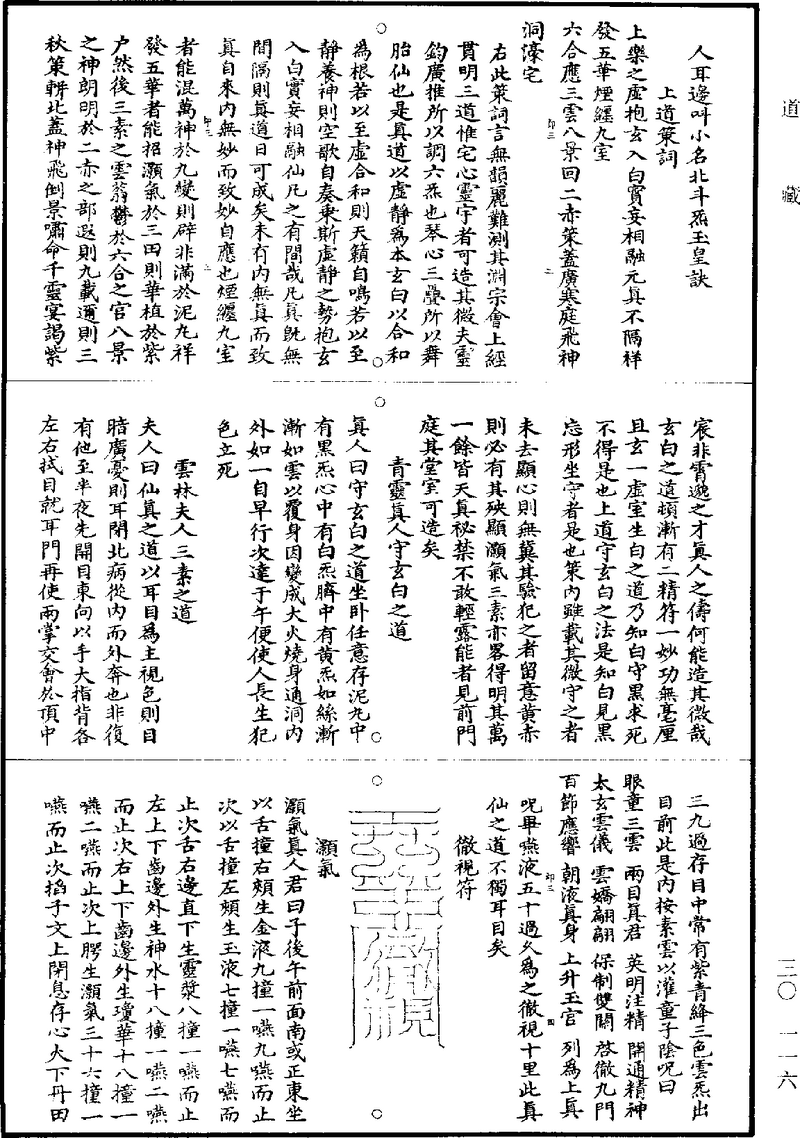 道藏
三〇 一一六
人耳邊叫小名北斗炁王皇訣
上道策詞
上樂之虛抱玄入白實妄相融元真不隔祥
發五華煙纏九室
六合應三雲八景回二赤策蓋廣寒庭飛神
洞濠宅
右此策詞言無韻麗難測其淵宗會上經
貫明三道惟宅心靈宇者可造其微夫靈
鈞廣推所以調六炁也琴心三疊所以舞
胎仙也是真道以虛靜為本玄白以合和
為根若以至虛合和則天籟自鳴若以至
靜養神則空歌自奏乘斯虛靜之勢抱玄
入白實妄相融仙凡之有間哉凡真既無
間隔則真道日可成矣未有內無真而致
真自來內無妙而致妙自應也煙纏九室
者能混萬神於九變則辟非滿於泥九祥
發五華者能招灝氣於三田則華植於紫
户然後三素之雲蓊欝於六合之官八景
之神朗明於二赤之部遐則九載邇則三
秋策軿北蓋神飛倒景嘯命千靈宴謁紫
宸非霄邈之才真人之儔何能造其微哉
玄白之道頓漸有二精符一妙功無毫厘
且玄一虛室生白之道乃知白守黑求死
不得是也上道守玄白之法是知白見黑
忘形坐守者是也策內雖載其微守之者
未去顯心則無冀其驗犯之者留意黄赤
則必有其殃顯灝氣三素亦畧得明其萬
一餘皆天真祕禁不敢輕露能者見前門
庭其堂室可造矣
青靈真人守玄白之道
真人曰守玄白之道坐卧任意存泥九中
有黑炁心中有白炁臍中有黄炁如絲漸
漸如雲以覆身因變成大火燒身通洞內
外如一自早行次達于午便使人長生犯
色立死
雲林夫人三素之道
夫人曰仙真之道以耳目為主視色則目
暗廣憂則耳閉北病從內而外奔也非復
有他至半夜先開目東向以手大指背各
左右拭目就耳門再使兩掌交會於頂中
三九過存目中常有紫青絳三色雲炁出
目前此是內按素雲以灌童子陰呪曰
眼童三雲 兩目真君 英明注精 開通精神
太玄雲儀 雲嬌翩翩 保制雙闕 啓徹九門
百節應響 朝液真身 上升玉官 列為上真
呪畢嚥液五十過久為之徹視十里此真
仙之道不獨耳目矣
徹視符
灝氣
灝氣真人君曰子後午前面南或正東坐
以舌撞右頰生金液九撞一嚥九嚥而止
次以舌撞左頰生玉液七撞一嚥七嚥而
止次舌右邊直下生靈漿八撞一嚥而止
左上下齒邊外生神水十八撞一嚥二嚥
而止次右上下齒邊外生瓊華十八撞一
嚥二嚥而止次上腭生灝氣三十六撞一
嚥而止次掐子文上閉息存心火下丹田